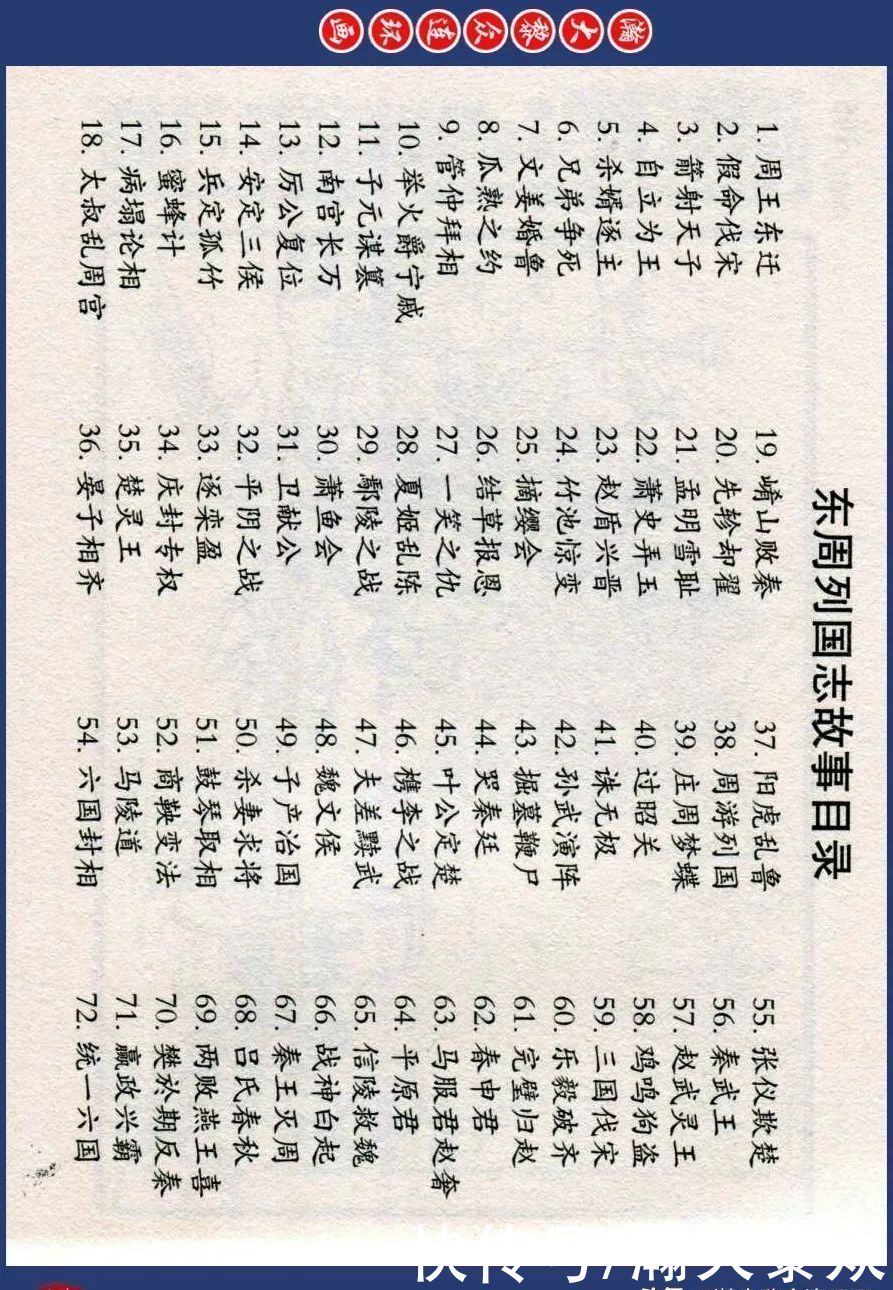 瀚大黎众连环画
东周列国志故事目录
1. 周王东迁
2. 假命伐宋
3. 箭射天子
4. 自立为王
5. 杀婿逐主
6. 兄弟争死
7. 文姜婚鲁
8. 瓜熟之约
9. 管仲拜相
10. 举火爵宁戚
11. 子元谋篡
12. 南宫长万
13. 厉公复位
14. 安定三侯
15. 兵定孤竹
16. 蜜蜂计
17. 病塌论相
18. 太叔乱周宫
19. 崤山败秦
20. 先轸却翟
21. 孟明雪耻
22. 萧史弄玉
23. 赵盾兴晋
24. 竹池惊变
25. 摘缨会
26. 结草报恩
27. 一笑之仇
28. 夏姬乱陈
29. 鄢陵之战
30. 萧鱼会
31. 卫献公
32. 平阴之战
33. 逐栾盈
34. 庆封专权
35. 楚灵王
36. 晏子相齐
37. 阳虎乱鲁
38. 周游列国
39. 庄周梦蝶
40. 过昭关
41. 诛无极
42. 孙武演阵
43. 掘墓鞭尸
44. 哭秦廷
45. 叶公定楚
46. 槜李之战
47. 夫差黩武
48. 魏文侯
49. 子产治国
50. 杀妻求将
51. 鼓琴取相
52. 商鞅变法
53. 马陵道
54. 六国封相
55. 张仪欺楚
56. 秦武王
57. 赵武灵王
58. 鸡鸣狗盗
59. 三国伐宋
60. 乐毅破齐
61. 完璧归赵
62. 春申君
63. 马服君赵奢
64. 平原君
65. 信陵救魏
66. 战神白起
67. 秦王灭周
68. 吕氏春秋
69. 两败燕王喜
70. 樊於期反秦
71. 嬴政兴霸
72. 统一六国
快传号/瀚大黎众